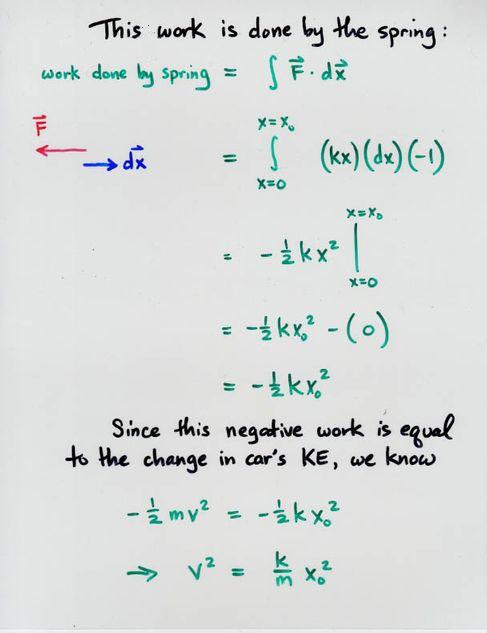 This work is done by the spring:
work done by spring = ∫ F⃗ · dx⃗
F⃗
dx⃗
x=x₀
= ∫ (kx)(dx)(-1)
x=0
x=x₀
= -½kx² |
x=0
= -½kx₀² - (0)
= -½kx₀²
Since this negative work is equal
to the change in car's KE, we know
-½mv² = -½kx₀²
⇒ v² = k/m x₀²